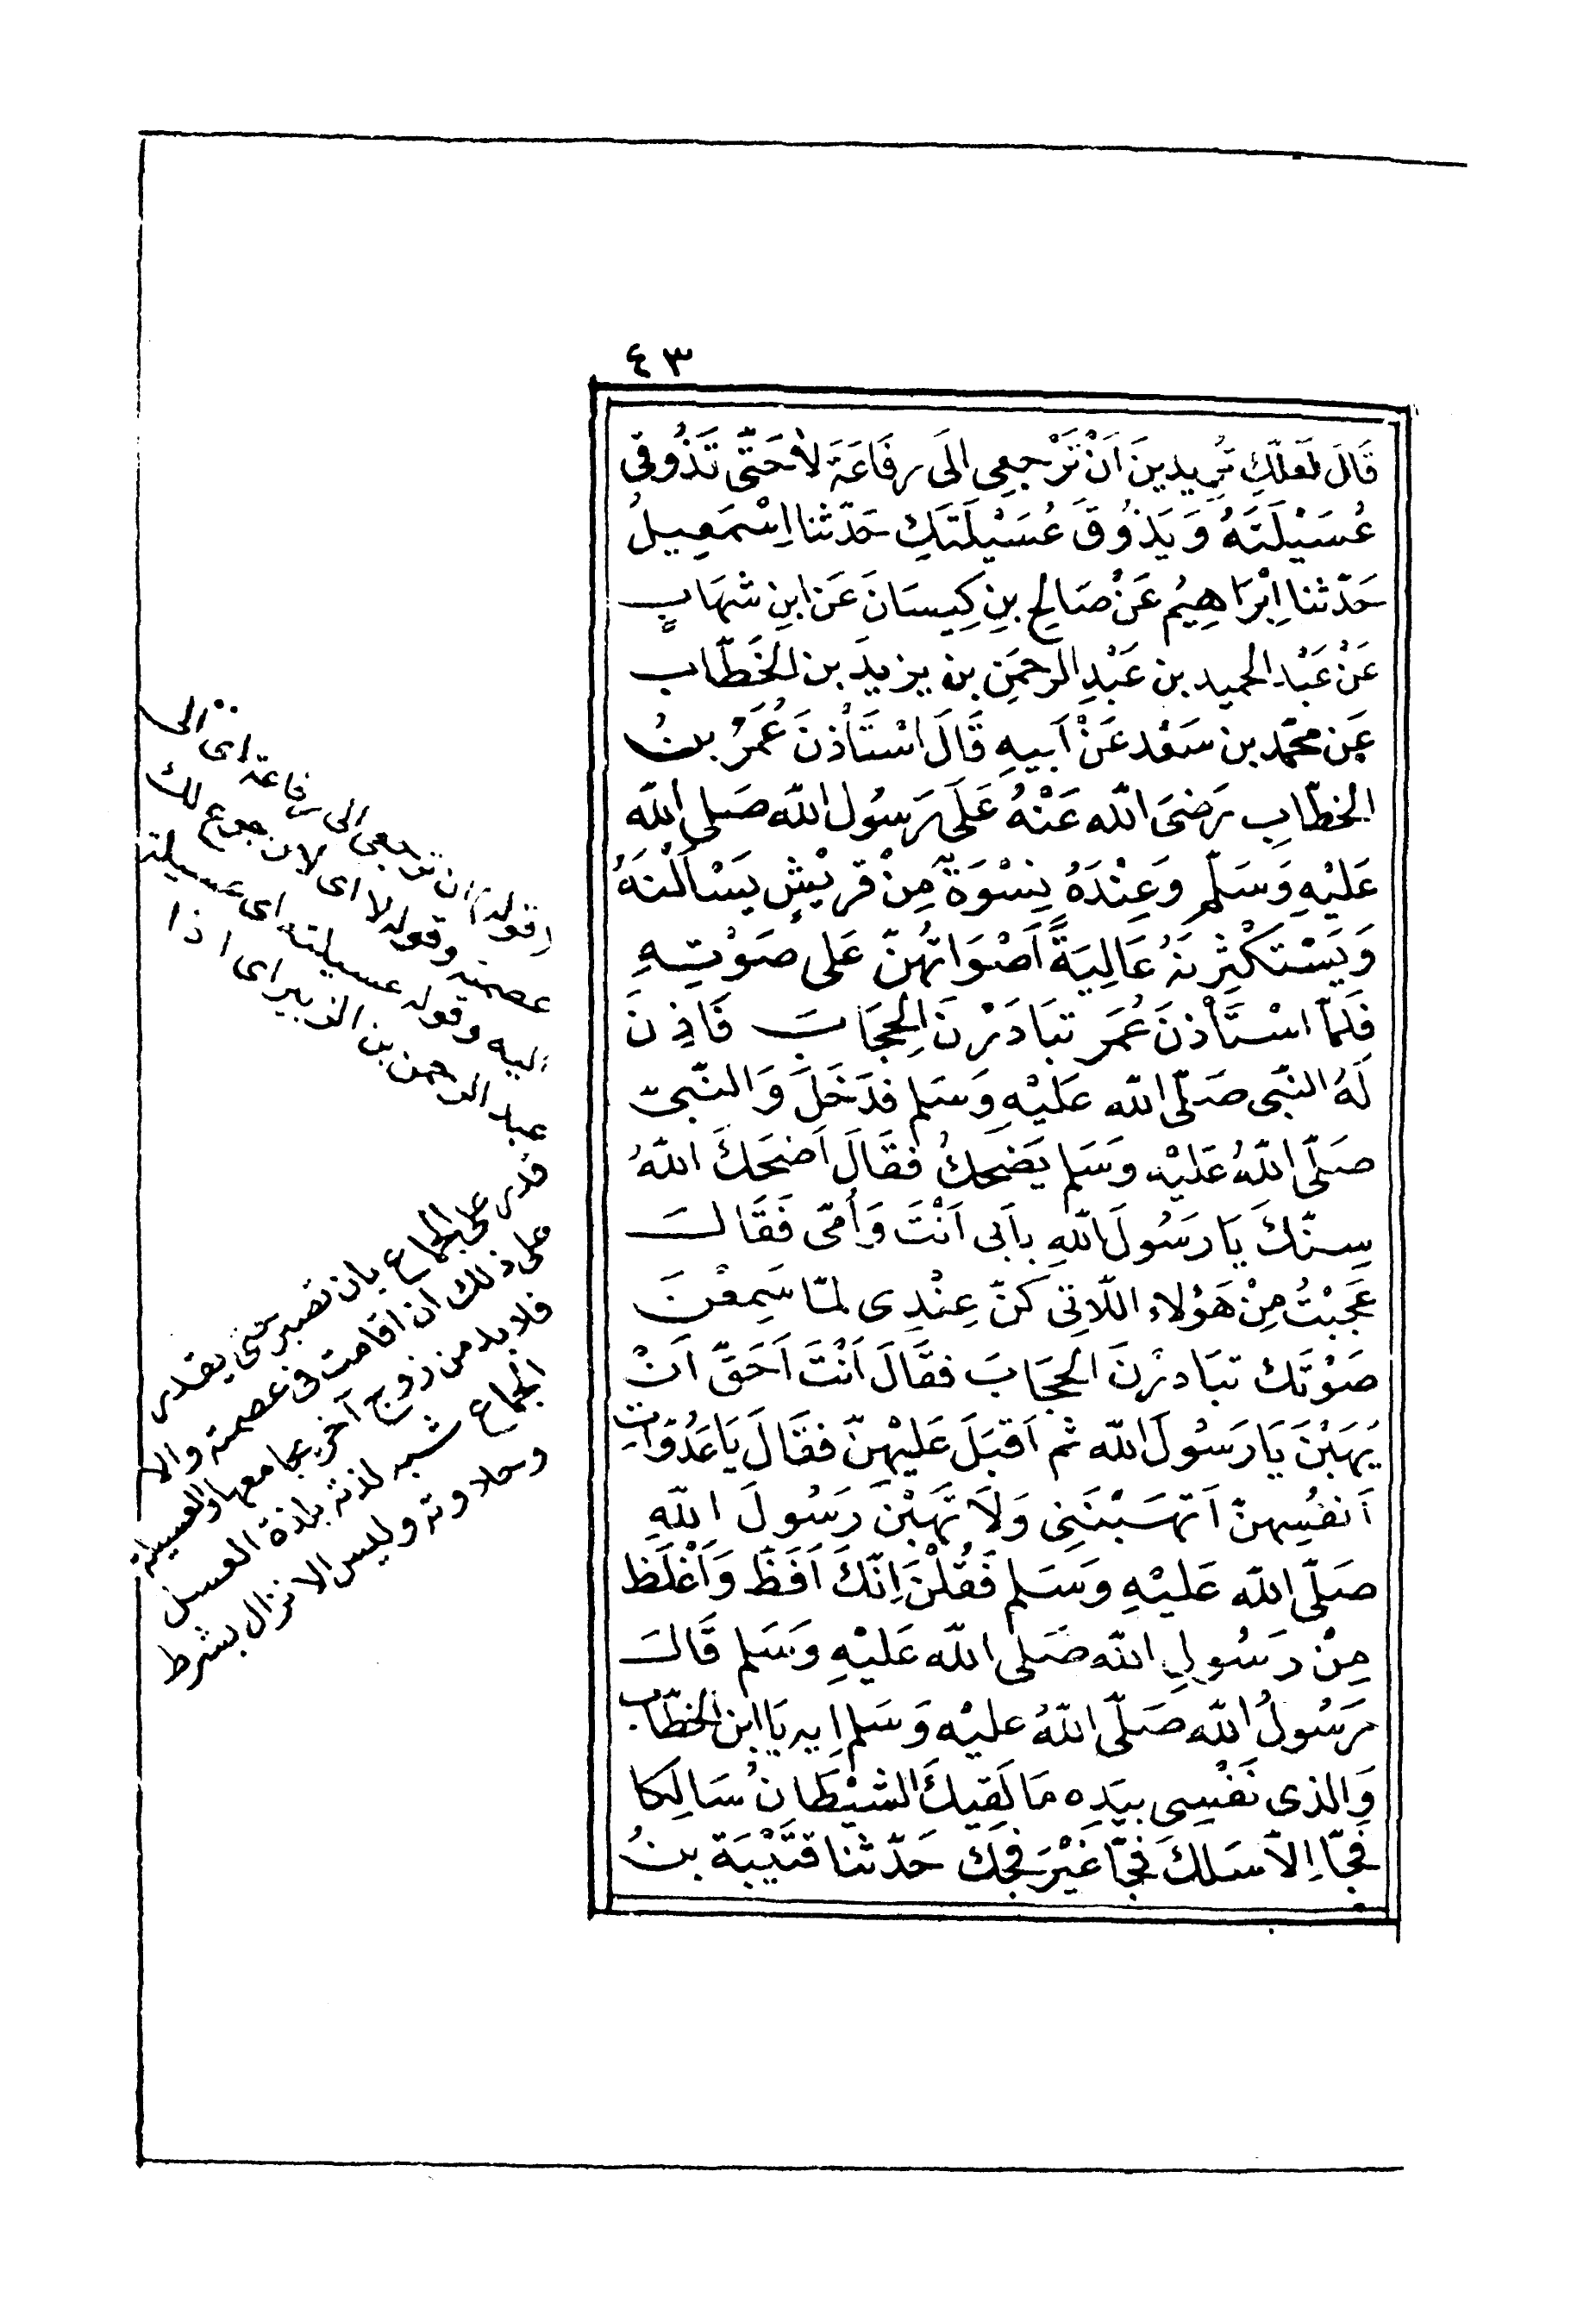 ٤٣
قَالَ لَعَلَّكِ تُرِيدِينَ اَنْ تَرْجِعِى اِلَى رِفَاعَةَ لَا حَتَّى تَذُوقِى
عُسَيْلَتَهُ وَيَذُوقَ عُسَيْلَتَكِ حَدّثنا اِسْمَعِيلُ
حَدّثنا اِبْرَاهِيمُ عَنْ صَالِحِ بنِ كِيسَانَ عَنِ ابنِ شهَابٍ
عَنْ عَبْدِ الحميد بن عَبْدِ الرحمَنِ بن يزيدَ بن الخَطّابِ
عَن محمّد بن سَعْد عَنْ اَبِيهِ قَالَ اسْتَأْذنَ عُمَرُ بنُ
الخطّابِ رَضىَ اللّه عَنْهُ عَلَى رَسُول اللّه صَلى اللّه
عَلَيْهِ وَسَلّم وَعِنْدَهُ نِسْوَةٌ مِنْ قرَيْشٍ يَسْاَلْنَهُ
وَيَسْتَكْثِرنَهُ عَالِيَةً اَصْوَاتُهُنّ عَلى صَوْتِهِ
فَلمّا اسْتَأْذنَ عُمَر تبَادَرْنَ الحِجَابَ فَاَذِنَ
لَهُ النّبى صَلّى اللّه عَليْهِ وَسَلم فدَخَلَ وَالنّبىّ
صَلّى اللّهُ عَليْه وَسَلم يَضحكُ فقَالَ اَضحَكَ اللّهُ
سِنّكَ يَا رَسُولَ اللّهِ بأبى اَنْتَ وَأُمّى فَقَالَ
عَجِبْتُ مِنْ هَؤلاء اللّاتى كنّ عِنْدِى لمّا سَمِعْنَ
صَوْتَك تبَادرْنَ الحجَابَ فقَالَ اَنْتَ اَحَقّ اَنْ
يَهَبْنَ يَا رَسُولَ اللّه ثم اَقبَلَ عَليْهِنّ فقَالَ يَا عَدُوّاتِ
اَنفُسِهنّ اَتهَبْنَنِى وَلَا تَهَبْنَ رَسُولَ اللّهِ
صَلّى اللّه عَليْهِ وَسَلم فَقُلْنَ اِنّكَ اَفَظّ وَاَغْلَظ
مِنْ رَسُولِ اللّه صَلى اللّه عَليْهِ وَسَلم قَالَ
رَسُولُ اللّه صَلّى اللّهُ عليْه وَسَلم اِيه يَا ابن الخطّاب
وَالذى نَفْسِى بيَدِه مَا لَقِيكَ الشيْطَانُ سَالِكا
فجّا اِلاّ سَلكَ فجّا غيْرَ فجك حَدّثنا قتَيْبَة بنُ
(قوله) ان ترجعى الى رفاعة اى الى
عصمته وقوله لا اى لا رجوع لك
اليه وقوله عسيلته اى عسيلة
عبد الرحمن بن الزبير اى اذا
قدر على الجماع بان تصبر حتى يقدر
على ذلك ان اقامت فى عصمته والا
فلا بد من زوج آخر يجامعها والعسيلة
الجماع شبه لذته بلذة العسل
وحلاوته وليس الانزال بشرط